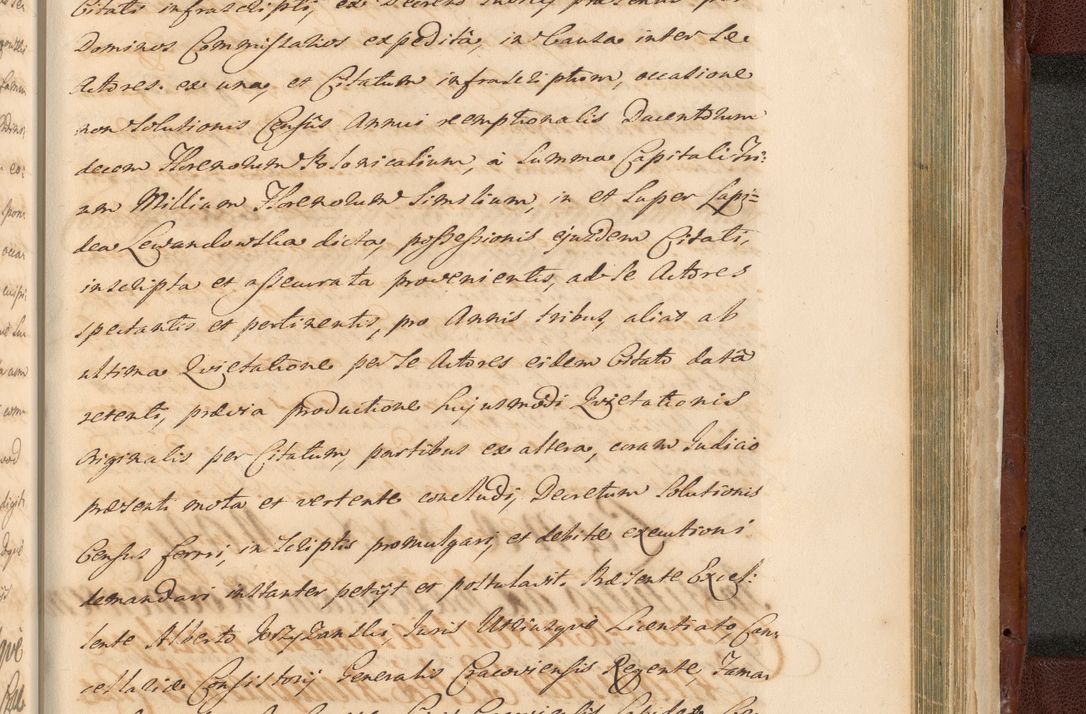 Citati infrascripti, ex Decreto
Dominos Commissarios expedita, in Causa inter Se
Actores ex una, et Citatum infrascriptum, occasione
non Solutionis Censûs Annui reemptionalis Ducentorum
decem Florenorum Polonicalium, à Summa Capitali Tri-
um Millium Florenorum Similium, in et Super Lapi-
dea Lewandowska dicta, possessionis ejusdem Citati,
inscripta et assecurata provenientis, ad Se Actores
spectantis et pertinentis, pro Annis tribus, alias ab
ultima Quietatione per Se Actores eidem Citato datâ
retenti, prævia productione hujusmodi Quietationis
Originalis per Citatum, partibus ex altera, coram Judicio
præsenti mota et vertente concludi, Decretum Solutionis
Census ferri, in Scriptis promulgari, et debitæ executioni
demandari instanter petijt et postulavit. Præsente Excel-
lente Alberto Juris Utriusque Licentiato, Can-
cellariæ Consistorij Generalis Cracoviensis Regente, Fama-